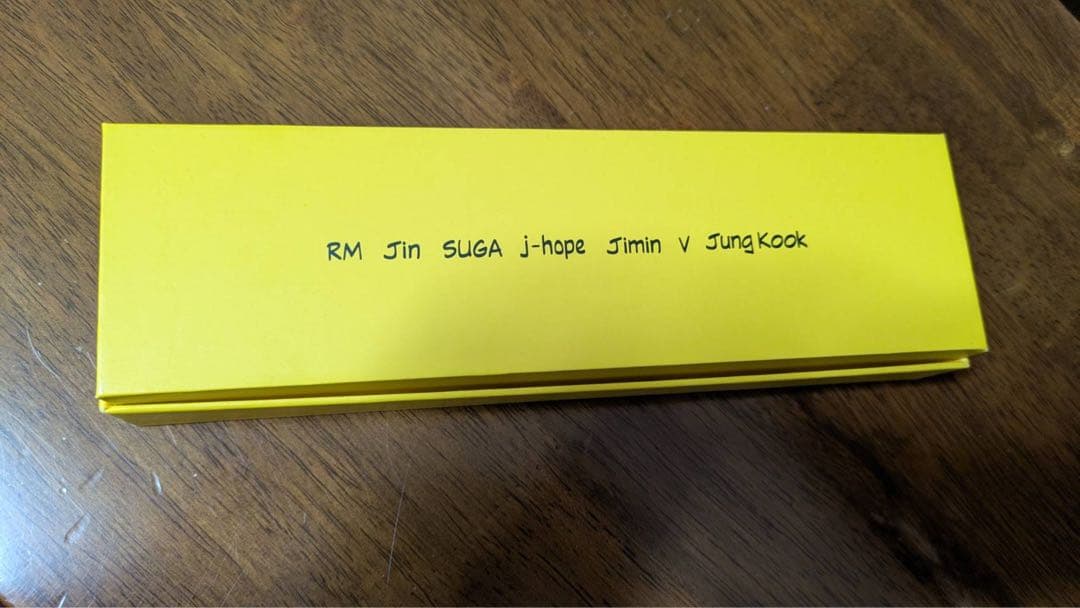 RM Jin SUGA j-hope Jimin V Jung Kook